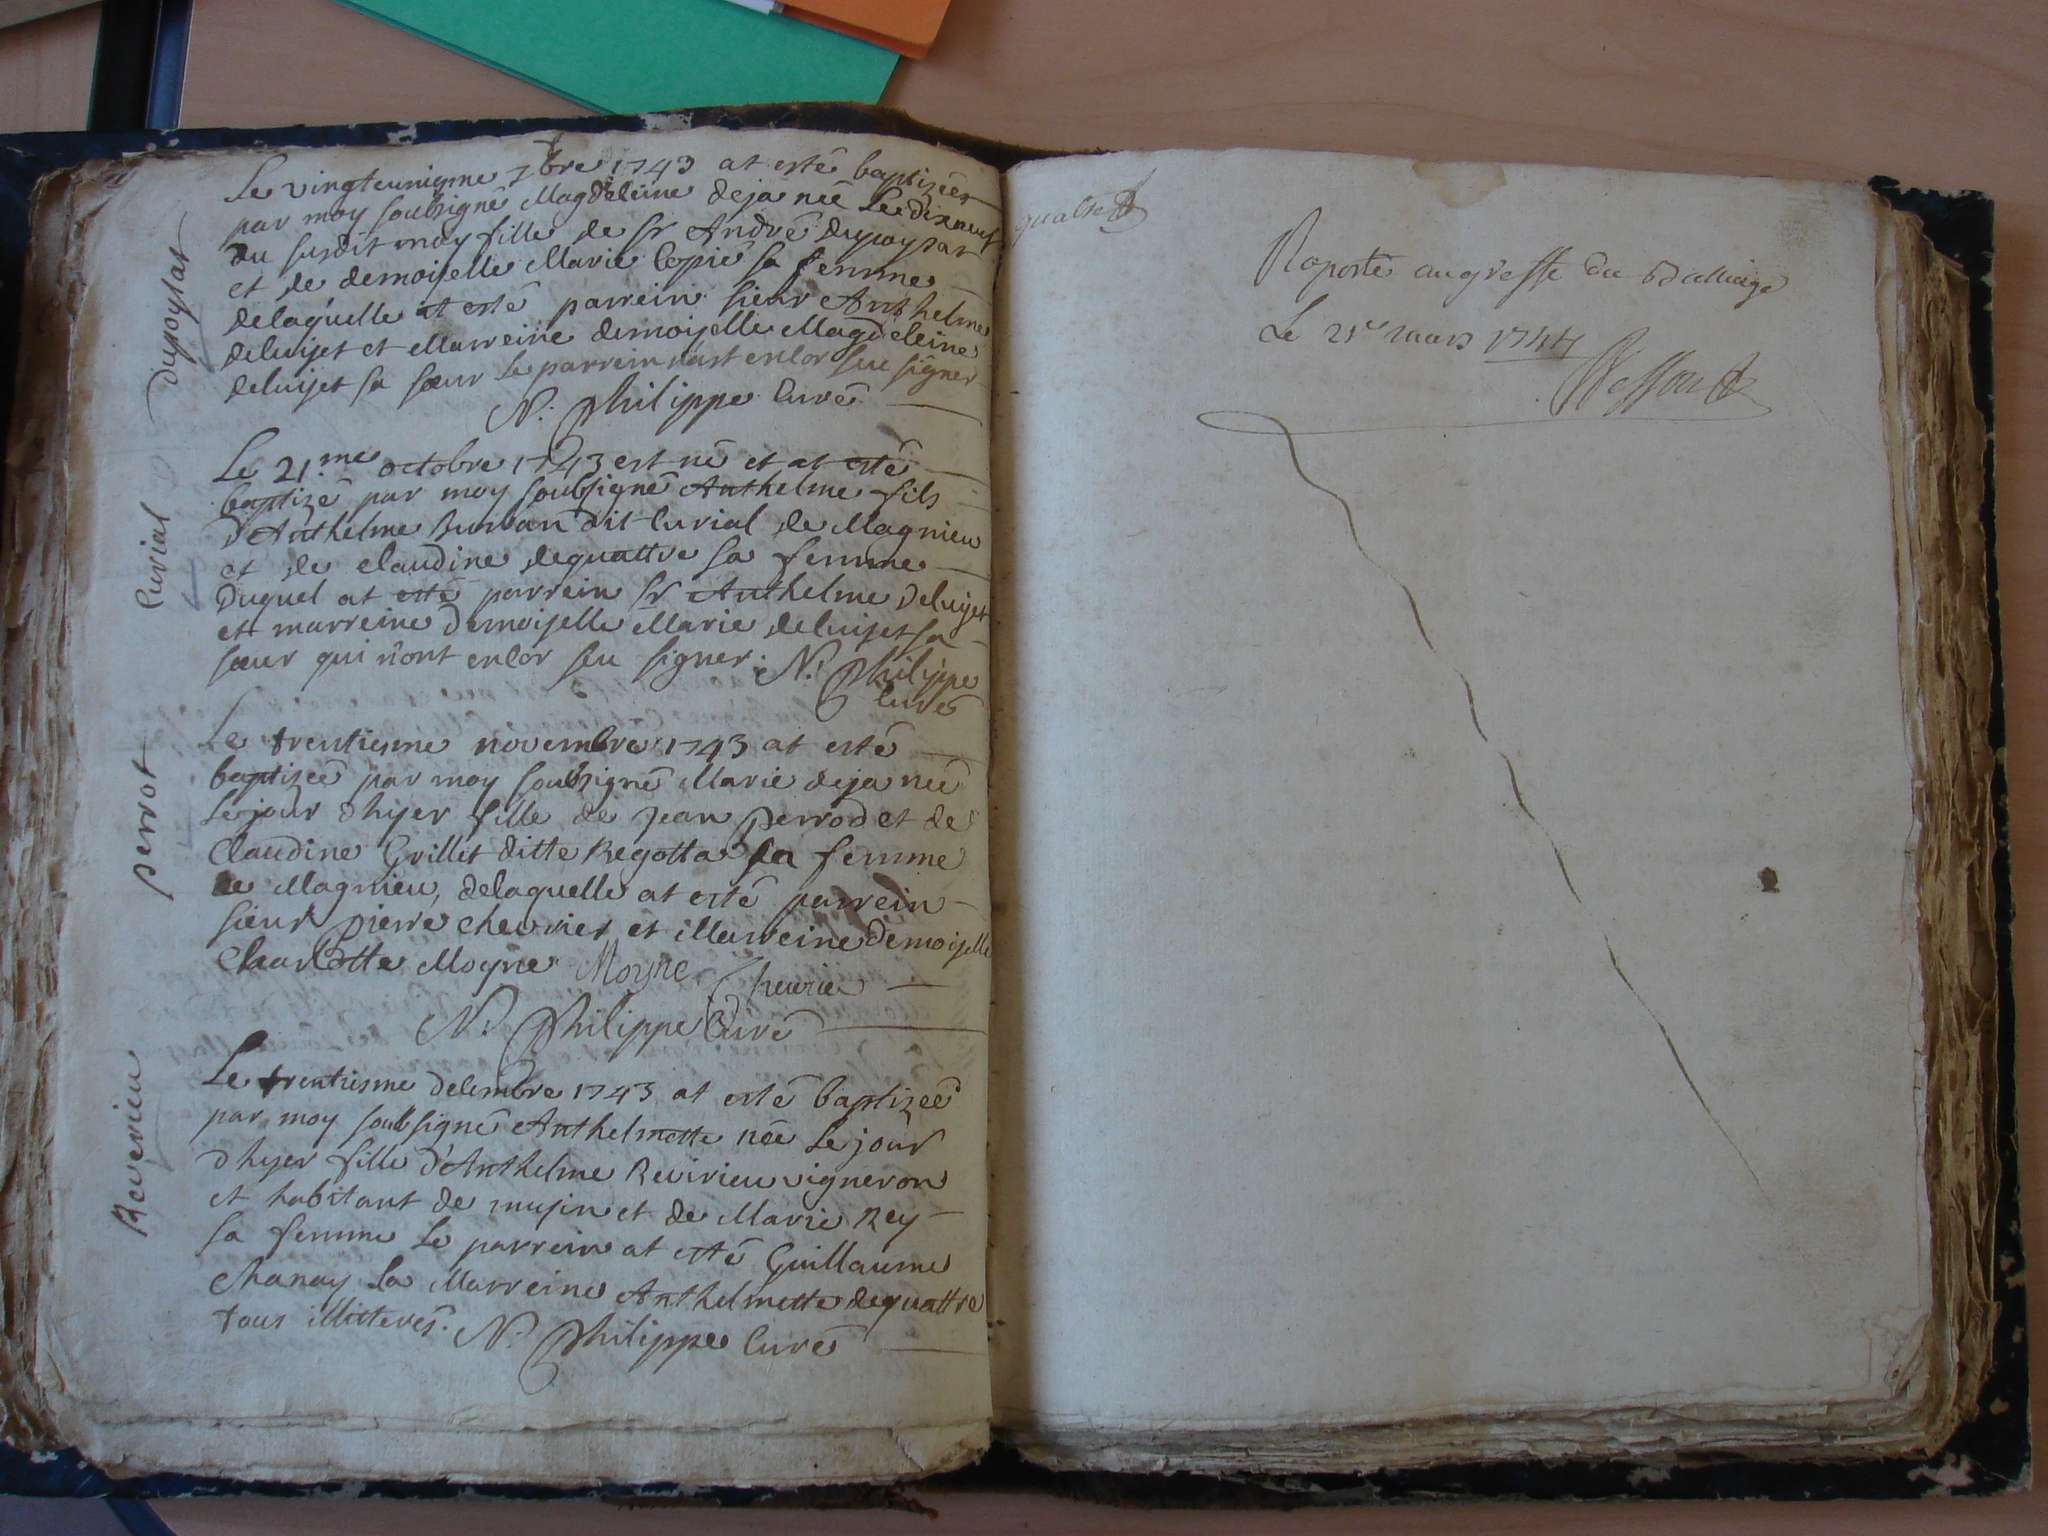 Dupoysat
Le vingteunieme 7bre 1743 at esté baptizée
par moy soubsigné Magdeleine deja née le dixneuf
du susdit moy fille de sr André Dupoysat
et de demoiselle Marie Copié sa femme
delaquelle at esté parrein sieur Anthelme
deluijet et Marreine demoiselle Magdeleine
deluijet sa sœur le parrein n'ast encor sceu signer
N. Philippe Curé
Curial
Le 21.me octobre 1743 est né et at esté
baptizé par moy soubsigné Anthelme fils
d'Anthelme dit Curial de Magnieu
et de Claudine dequattre sa femme
Duquel at esté parrein sr Anthelme deluijet
et marreine demoiselle Marie deluijet sa
sœur qui n'ont encor seu signer. N. Philippe
Curé
perrot
Le trentieme novembre 1743 at esté
baptizée par moy soubsigné Marie deja née
le jour d'hyer fille de Jean perrod et de
Claudine Grillet ditte Regotta sa femme
de Magnieu, delaquelle at esté parrein
sieur pierre chevrier et Marreine demoiselle
Charlotte Moyne Moyne Cheurier
N. Philippe Curé
Revenieu
Le trentieme decembre 1743 at esté baptizée
par moy soubsigné Anthelmette née le jour
d'hyer fille d'Anthelme Revirieu vigneron
et habitant de musin et de Marie Rey
sa femme le parrein at esté Guillaume
Chanay la Marreine Anthelmette dequattre
tous illitterés. N. Philippe Curé
quatre
Raporté au greffe du Balliage
Le 21e mars 1744